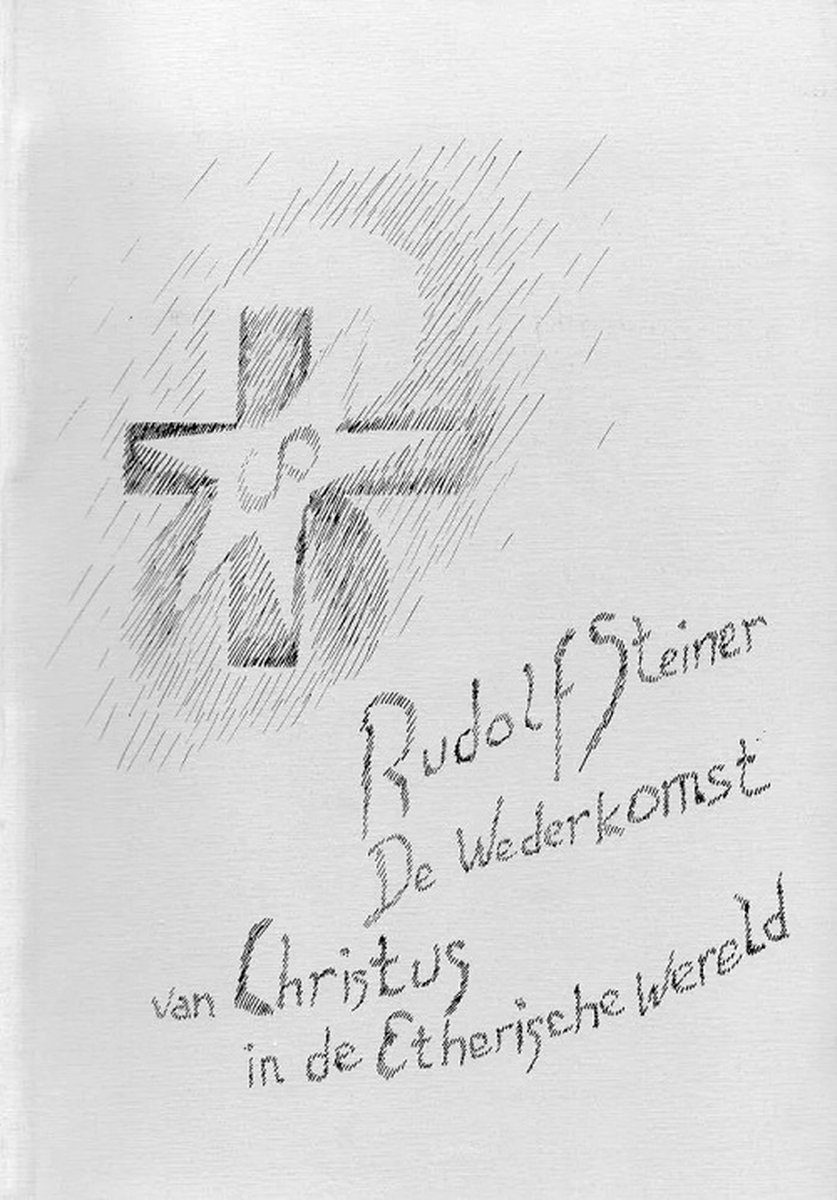 Rudolf Steiner
De Wederkomst
van Christus
in de Etherische Wereld